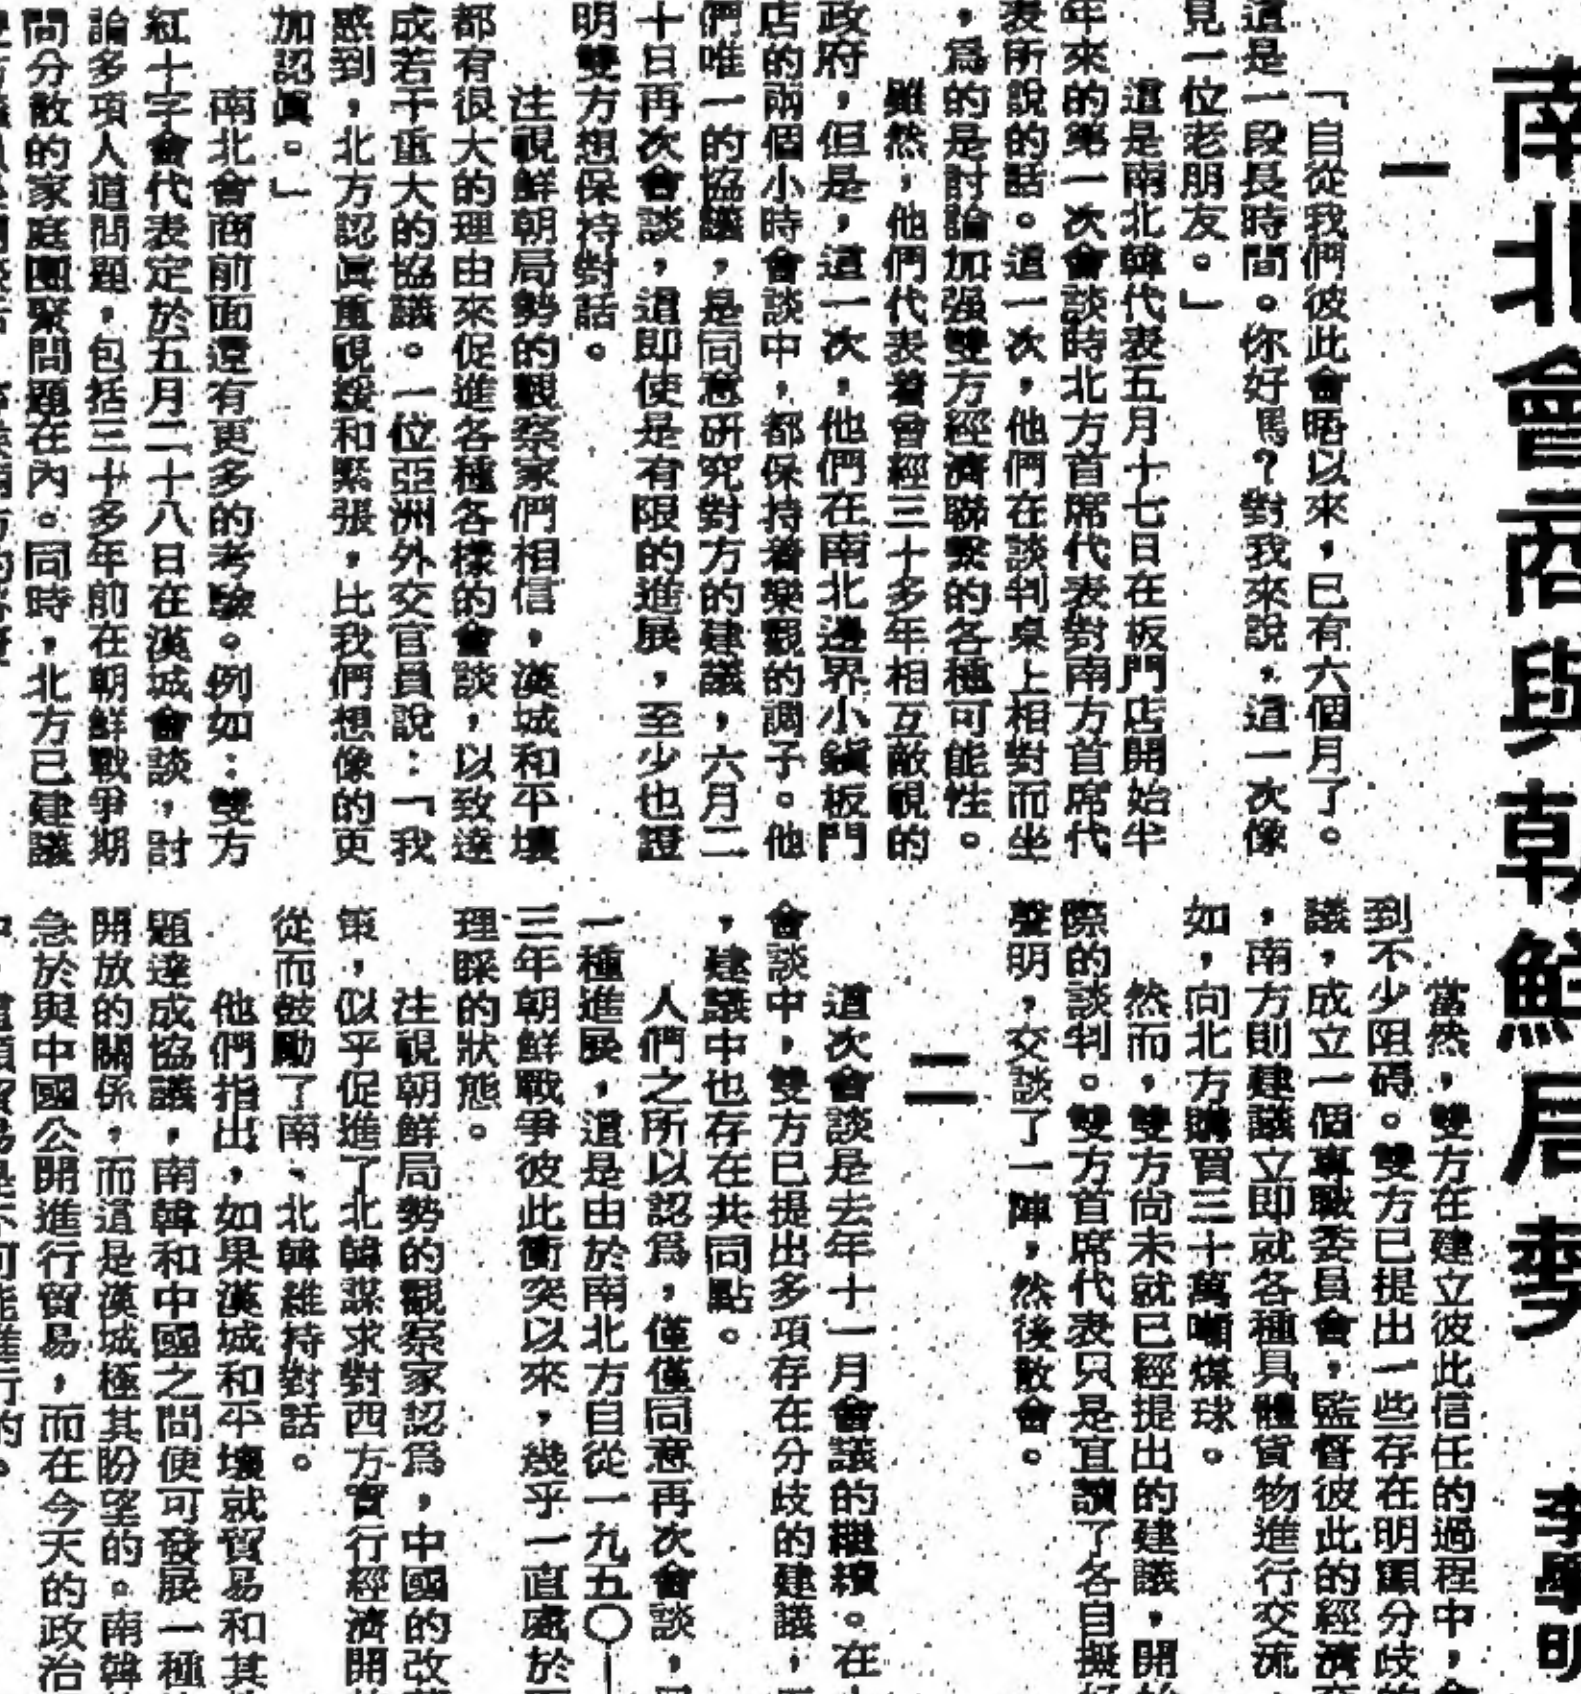 南北會商與朝鮮局勢
李學明
一
「自從我們彼此會晤以來，已有六個月了。
這是一段長時間。你好嗎？對我來說，這一次像
見一位老朋友。」
這是南北韓代表五月十七日在板門店開始半
年來的第一次會談時北方首席代表對南方首席代
表所說的話。這一次，他們在談判桌上相對而坐
，爲的是討論加强雙方經濟聯繫的各種可能性。
雖然，他們代表着曾經三十多年相互敵視的
政府，但是，這一次，他們在南北邊界小鎮板門
店的兩個小時會談中，都保持着樂觀的調子。他
們唯一的協議，是同意研究對方的建議，六月二
十日再次會談，這即使是有限的進展，至少也證
明雙方想保持對話。
注視鮮朝局勢的觀察家們相信，漢城和平壤
都有很大的理由來促進各種各樣的會談，以致達
成若干重大的協議。一位亞洲外交官員說：「我
感到，北方認眞重視緩和緊張，比我們想像的更
加認眞。」
南北會商前面還有更多的考驗。例如：雙方
紅十字會代表定於五月二十八日在漢城會談，討
論多項人道問題，包括三十多年前在朝鮮戰爭期
間分散的家庭團聚問題在內。同時，北方已建議
當然，雙方在建立彼此信任的過程中，會
到不少阻碍。雙方已提出一些存在明顯分歧的
議，成立一個專職委員會，監督彼此的經濟交
，南方則建議立即就各種具體貨物進行交流，
如，向北方購買三十萬噸煤球。
然而，雙方尚未就已經提出的建議，開始
際的談判。雙方首席代表只是宣讀了各自擬好
聲明，交談了一陣，然後散會。
二
這次會談是去年十一月會議的繼續。在
會談中，雙方已提出多項存在分歧的建議，
，建議中也存在共同點。
人們之所以認爲，僅僅同意再次會談，
一種進展，這是由於南北方自從一九五〇—
三年朝鮮戰爭彼此衝突以來，幾乎一直處於
理睬的狀態。
注視朝鮮局勢的觀察家認爲，中國的改革
策，似乎促進了北韓謀求對西方實行經濟開
從而鼓勵了南、北韓維持對話。
他們指出，如果漢城和平壤就貿易和其
題達成協議，南韓和中國之間便可發展一種
開放的關係，而這是漢城極其盼望的。南韓
急於與中國公開進行貿易，而在今天的政治